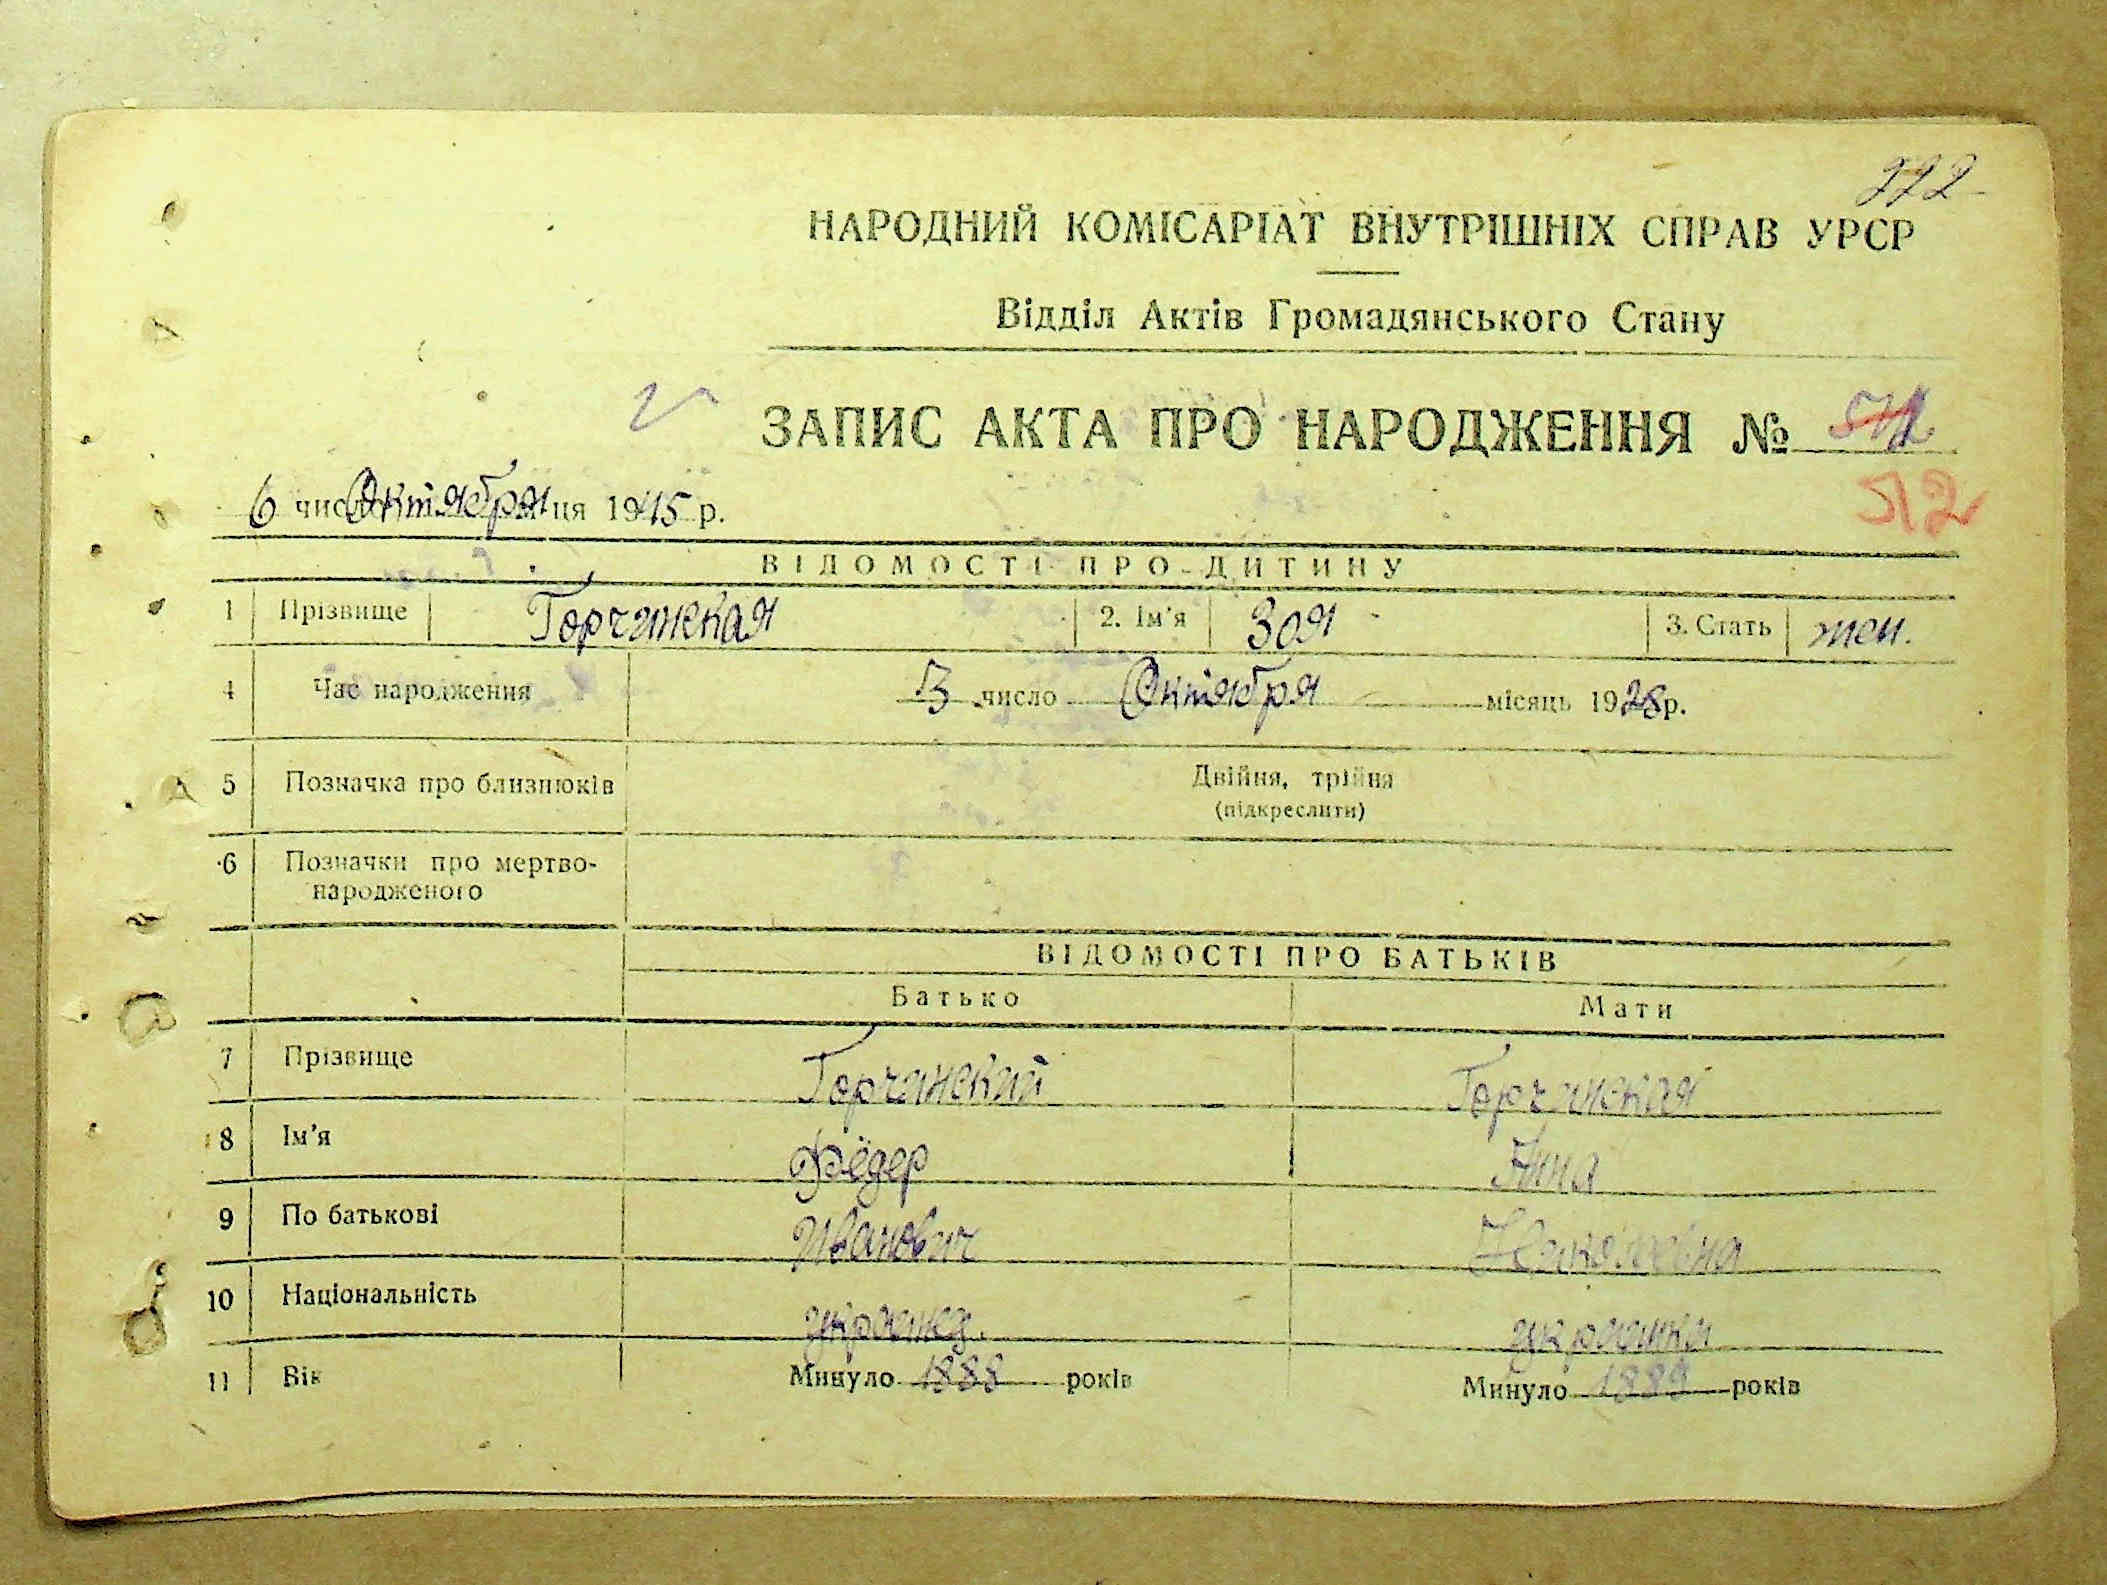 222
НАРОДНИЙ КОМІСАРІАТ ВНУТРІШНІХ СПРАВ УРСР
Відділ Актів Громадянського Стану
ЗАПИС АКТА ПРО НАРОДЖЕННЯ №
512
6 число Октября місяця 1945 р.
ВІДОМОСТІ ПРО ДИТИНУ
1 Прізвище Горчинская 2. Ім'я Зоя 3. Стать жен.
4 Час народження 3 число Октября місяць 1928 р.
5 Позначка про близнюків Двійня, трійня
(підкреслити)
6 Позначки про мертво-
народженого
ВІДОМОСТІ ПРО БАТЬКІВ
Батько Мати
7 Прізвище Горчинский Горчинская
8 Ім'я Фёдер Анна
9 По батькові Иванович Николаевна
10 Національність украинец. украинка
11 Вік Минуло 1888 років Минуло 1889 років